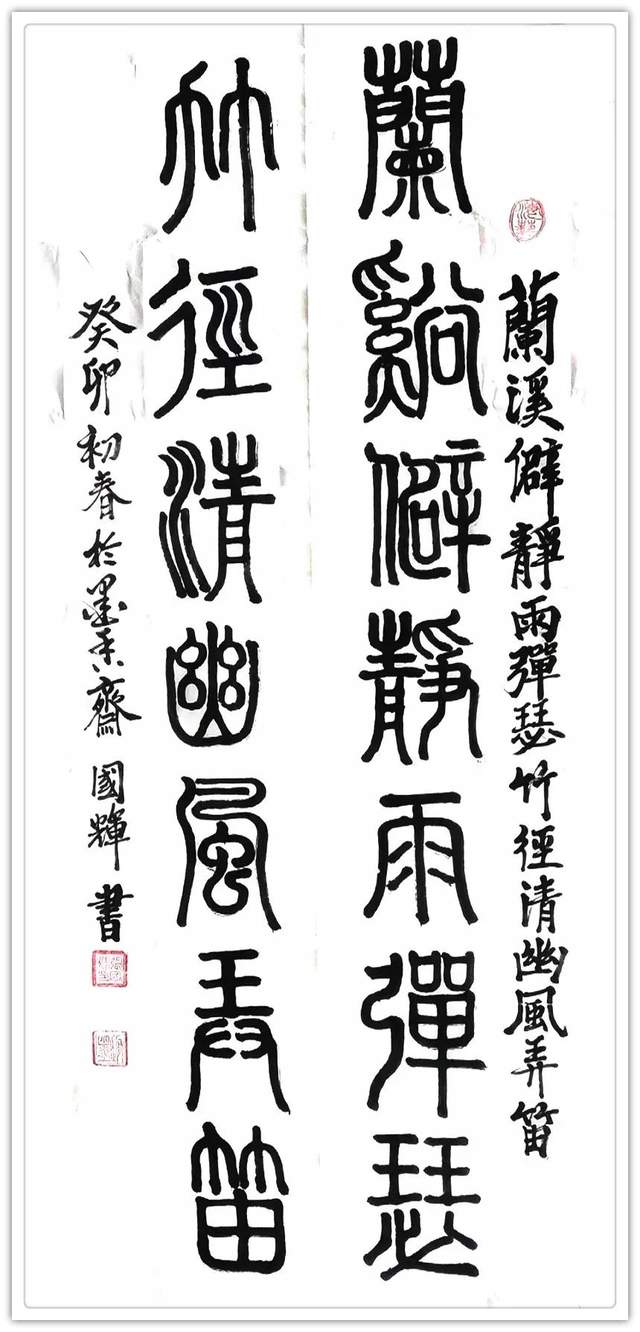 蘭溪僻靜雨彈瑟竹徑清幽風弄笛
蘭谿僻靜雨彈瑟
竹徑清幽風弄笛
癸卯初春於墨香齋國輝書